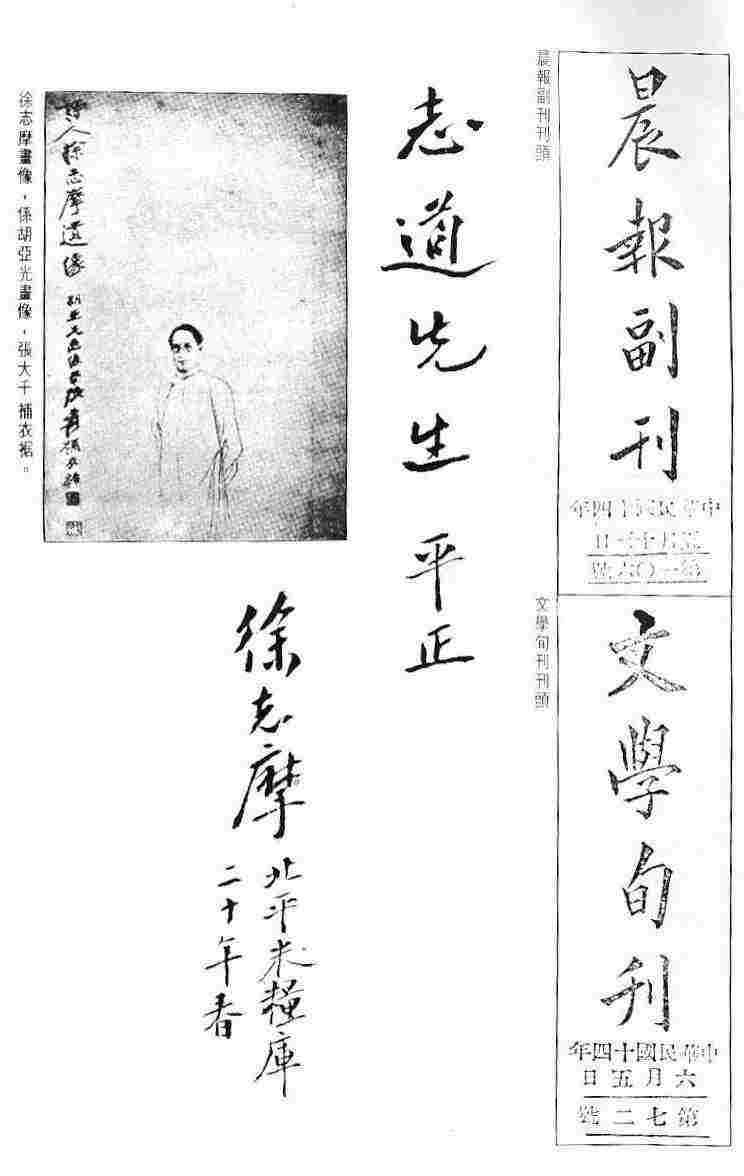 晨報副刊
中華民國十四年
第一〇六號
文學旬刊
中華民國十四年
六月五日
第七二號
晨報副刊刊頭
文學旬刊刊頭
志道先生 平正
徐志摩
北平米糧庫
二十年春
詩人徐志摩遺像
徐志摩畫像，係胡亞光畫像，張大千補衣裾。